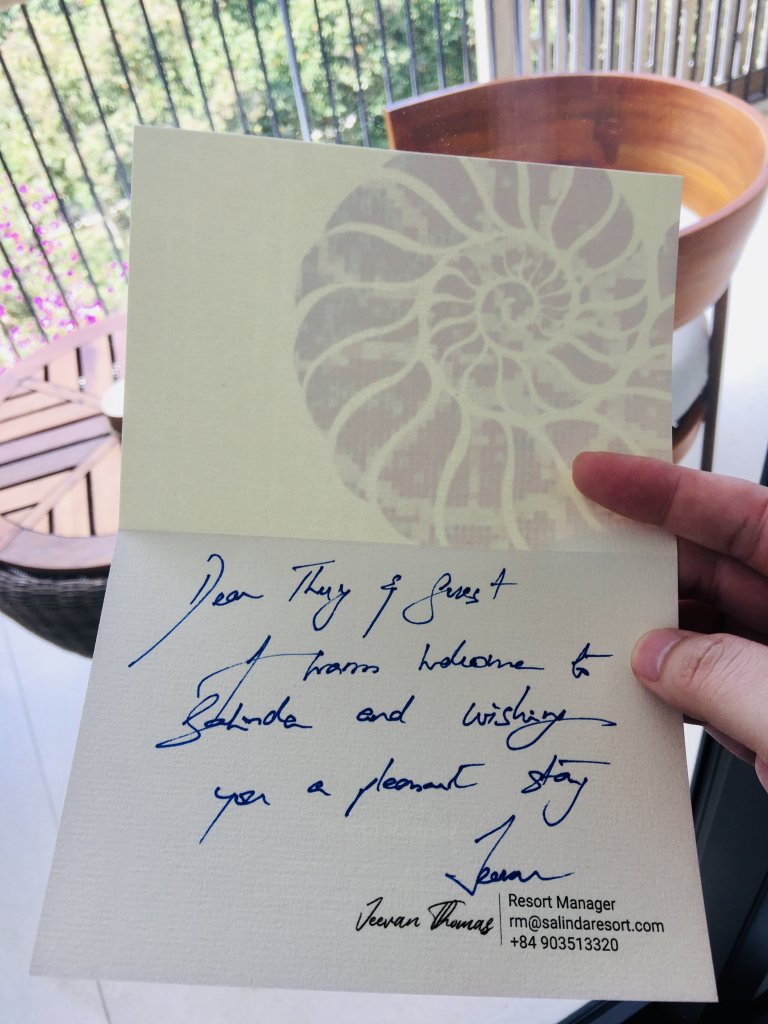 Dear Thuy & Guest
A warm welcome to
Salinda and wishing
you a pleasant stay
Jeevan
Jeevan Thomas
Resort Manager
rm@salindaresort.com
+84 903513320